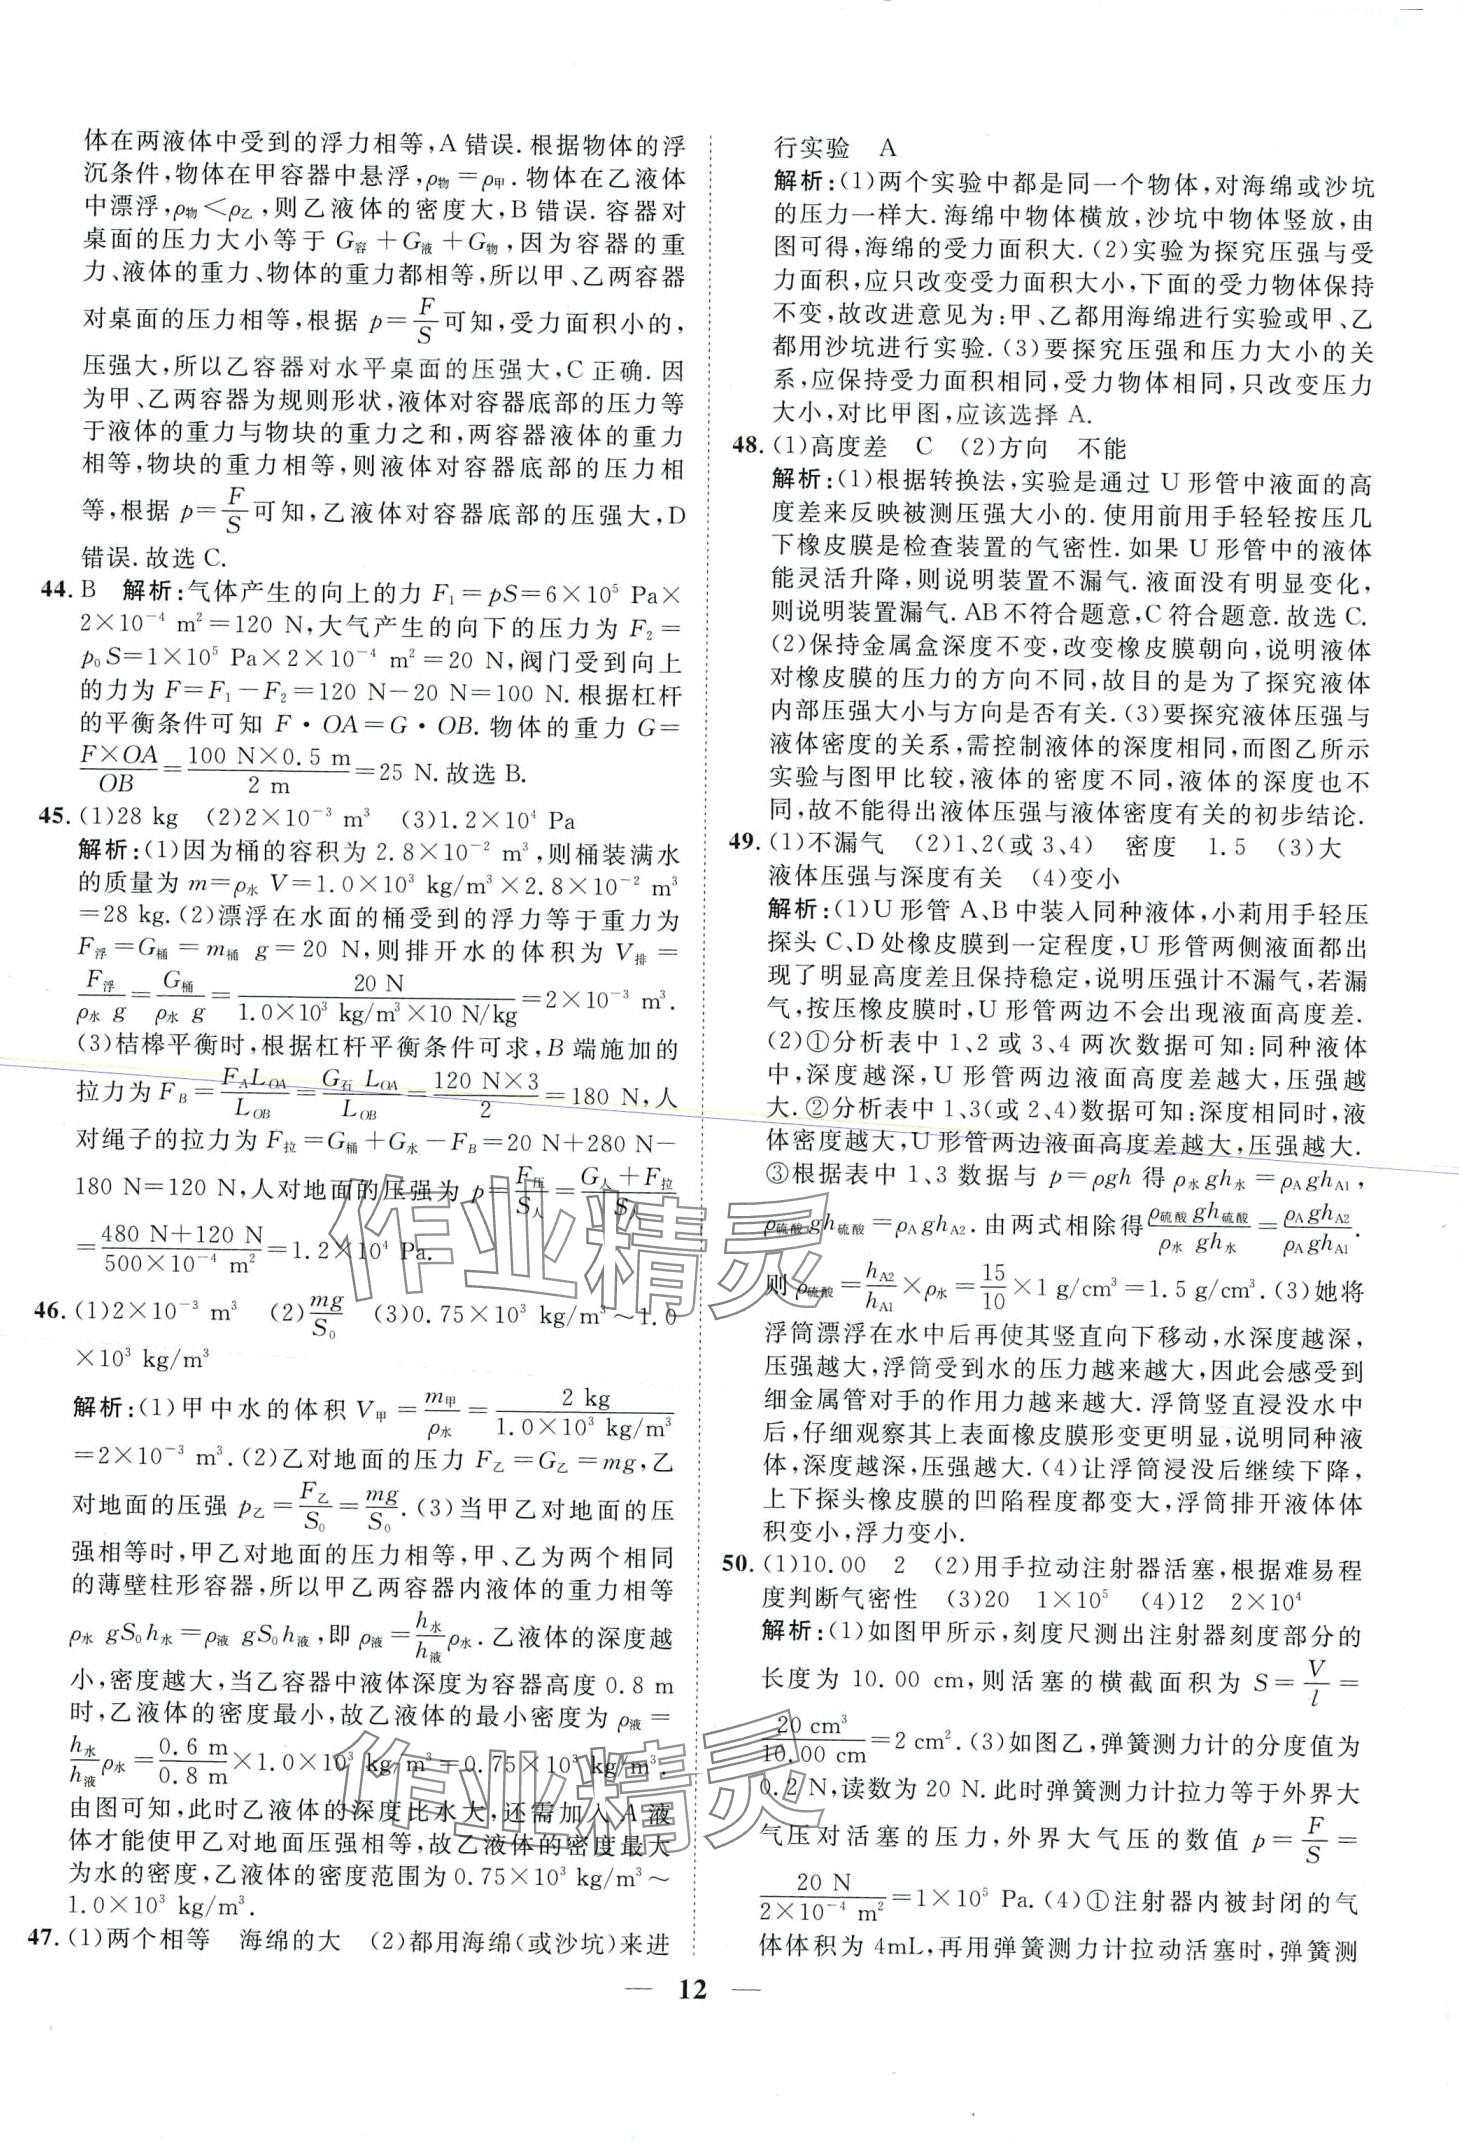 体在两液体中受到的浮力相等,A 错误. 根据物体的浮
沉条件,物体在甲容器中悬浮,ρ物=ρ甲. 物体在乙液体
中漂浮,ρ物<ρ乙,则乙液体的密度大,B 错误. 容器对
桌面的压力大小等于 G容+G液+G物,因为容器的重
力、液体的重力、物体的重力都相等,所以甲、乙两容器
对桌面的压力相等,根据 p=F/S可知,受力面积小的,
压强大,所以乙容器对水平桌面的压强大,C 正确. 因
为甲、乙两容器为规则形状,液体对容器底部的压力等
于液体的重力与物块的重力之和,两容器液体的重力
相等,物块的重力相等,则液体对容器底部的压力相
等,根据 p=F/S可知,乙液体对容器底部的压强大,D
错误. 故选 C.
44. B 解析:气体产生的向上的力 F₁=pS=6×10⁵ Pa×
2×10⁻⁴ m²=120 N,大气产生的向下的压力为 F₂=
p₀S=1×10⁵ Pa×2×10⁻⁴ m²=20 N,阀门受到向上
的力为 F=F₁-F₂=120 N-20 N=100 N. 根据杠杆
的平衡条件可知 F·OA=G·OB. 物体的重力 G=
F×OA/OB=100 N×0.5 m/2 m=25 N. 故选 B.
45. (1)28 kg (2)2×10⁻³ m³ (3)1.2×10⁴ Pa
解析:(1)因为桶的容积为 2.8×10⁻² m³,则桶装满水
的质量为 m=ρ水 V=1.0×10³ kg/m³×2.8×10⁻² m³
=28 kg. (2)漂浮在水面的桶受到的浮力等于重力为
F浮=G桶=m桶 g=20 N,则排开水的体积为 V排=
F浮/ρ水 g=G桶/ρ水 g=20 N/1.0×10³ kg/m³×10 N/kg=2×10⁻³ m³.
(3)桔槔平衡时,根据杠杆平衡条件可求,B 端施加的
拉力为 F_B=F_A L_OA/L_OB=G石 L_OA/L_OB=120 N×3/2=180 N,人
对绳子的拉力为 F拉=G桶+G水-F_B=20 N+280 N-
180 N=120 N,人对地面的压强为 p=F压/S人=G人+F拉/S人
=480 N+120 N/500×10⁻⁴ m²=1.2×10⁴ Pa.
46. (1)2×10⁻³ m³ (2)mg/S₀ (3)0.75×10³ kg/m³~1.0
×10³ kg/m³
解析:(1)甲中水的体积 V甲=m甲/ρ水=2 kg/1.0×10³ kg/m³
=2×10⁻³ m³. (2)乙对地面的压力 F乙=G乙=mg,乙
对地面的压强 p乙=F乙/S₀=mg/S₀. (3)当甲乙对地面的压
强相等时,甲乙对地面的压力相等,甲、乙为两个相同
的薄壁柱形容器,所以甲乙两容器内液体的重力相等
ρ水 gS₀h水=ρ液 gS₀h液,即 ρ液=h水/h液 ρ水. 乙液体的深度越
小,密度越大,当乙容器中液体深度为容器高度 0.8 m
时,乙液体的密度最小,故乙液体的最小密度为 ρ液=
h水/h液 ρ水=0.6 m/0.8 m×1.0×10³ kg/m³=0.75×10³ kg/m³.
由图可知,此时乙液体的深度比水大,还需加入 A 液
体才能使甲乙对地面压强相等,故乙液体的密度最大
为水的密度,乙液体的密度范围为 0.75×10³ kg/m³~
1.0×10³ kg/m³.
47. (1)两个相等 海绵的大 (2)都用海绵(或沙坑)来进
行实验 A
解析:(1)两个实验中都是同一个物体,对海绵或沙坑
的压力一样大. 海绵中物体横放,沙坑中物体竖放,由
图可得,海绵的受力面积大. (2)实验为探究压强与受
力面积,应只改变受力面积大小,下面的受力物体保持
不变,故改进意见为:甲、乙都用海绵进行实验或甲、乙
都用沙坑进行实验. (3)要探究压强和压力大小的关
系,应保持受力面积相同,受力物体相同,只改变压力
大小,对比甲图,应该选择 A.
48. (1)高度差 C (2)方向 不能
解析:(1)根据转换法,实验是通过 U 形管中液面的高
度差来反映被测压强大小的. 使用前用手轻轻按压几
下橡皮膜是检查装置的气密性. 如果 U 形管中的液体
能灵活升降,则说明装置不漏气. 液面没有明显变化,
则说明装置漏气. AB 不符合题意,C 符合题意. 故选 C.
(2)保持金属盒深度不变,改变橡皮膜朝向,说明液体
对橡皮膜的压力的方向不同,故目的是为了探究液体
内部压强大小与方向是否有关. (3)要探究液体压强与
液体密度的关系,需控制液体的深度相同,而图乙所示
实验与图甲比较,液体的密度不同,液体的深度也不
同,故不能得出液体压强与液体密度有关的初步结论.
49. (1)不漏气 (2)1、2(或 3、4) 密度 1.5 (3)大
液体压强与深度有关 (4)变小
解析:(1)U 形管 A、B 中装入同种液体,小莉用手轻压
探头 C、D 处橡皮膜到一定程度,U 形管两侧液面都出
现了明显高度差且保持稳定,说明压强计不漏气,若漏
气,按压橡皮膜时,U 形管两边不会出现液面高度差.
(2)①分析表中 1、2 或 3、4 两次数据可知:同种液体
中,深度越深,U 形管两边液面高度差越大,压强越
大. ②分析表中 1、3(或 2、4)数据可知:深度相同时,液
体密度越大,U 形管两边液面高度差越大,压强越大.
③根据表中 1、3 数据与 p=ρgh 得 ρ水 gh水=ρA ghA1,
ρ硫酸 gh硫酸=ρA ghA2. 由两式相除得ρ硫酸 gh硫酸/ρ水 gh水=ρA ghA2/ρA ghA1.
则 ρ硫酸=hA2/hA1×ρ水=15/10×1 g/cm³=1.5 g/cm³. (3)她将
浮筒漂浮在水中后再使其竖直向下移动,水深度越深,
压强越大,浮筒受到水的压力越来越大,因此会感受到
细金属管对手的作用力越来越大. 浮筒竖直浸没水中
后,仔细观察其上表面橡皮膜形变更明显,说明同种液
体,深度越深,压强越大. (4)让浮筒浸没后继续下降,
上下探头橡皮膜的凹陷程度都变大,浮筒排开液体体
积变小,浮力变小.
50. (1)10.00 2 (2)用手拉动注射器活塞,根据难易程
度判断气密性 (3)20 1×10⁵ (4)12 2×10⁴
解析:(1)如图甲所示,刻度尺测出注射器刻度部分的
长度为 10.00 cm,则活塞的横截面积为 S=V/l=
20 cm³/10.00 cm=2 cm². (3)如图乙,弹簧测力计的分度值为
0.2 N,读数为 20 N. 此时弹簧测力计拉力等于外界大
气压对活塞的压力,外界大气压的数值 p=F/S=
20 N/2×10⁻⁴ m²=1×10⁵ Pa. (4)①注射器内被封闭的气
体体积为 4mL,再用弹簧测力计拉动活塞时,弹簧测
— 12 —
作业精灵
作业精灵